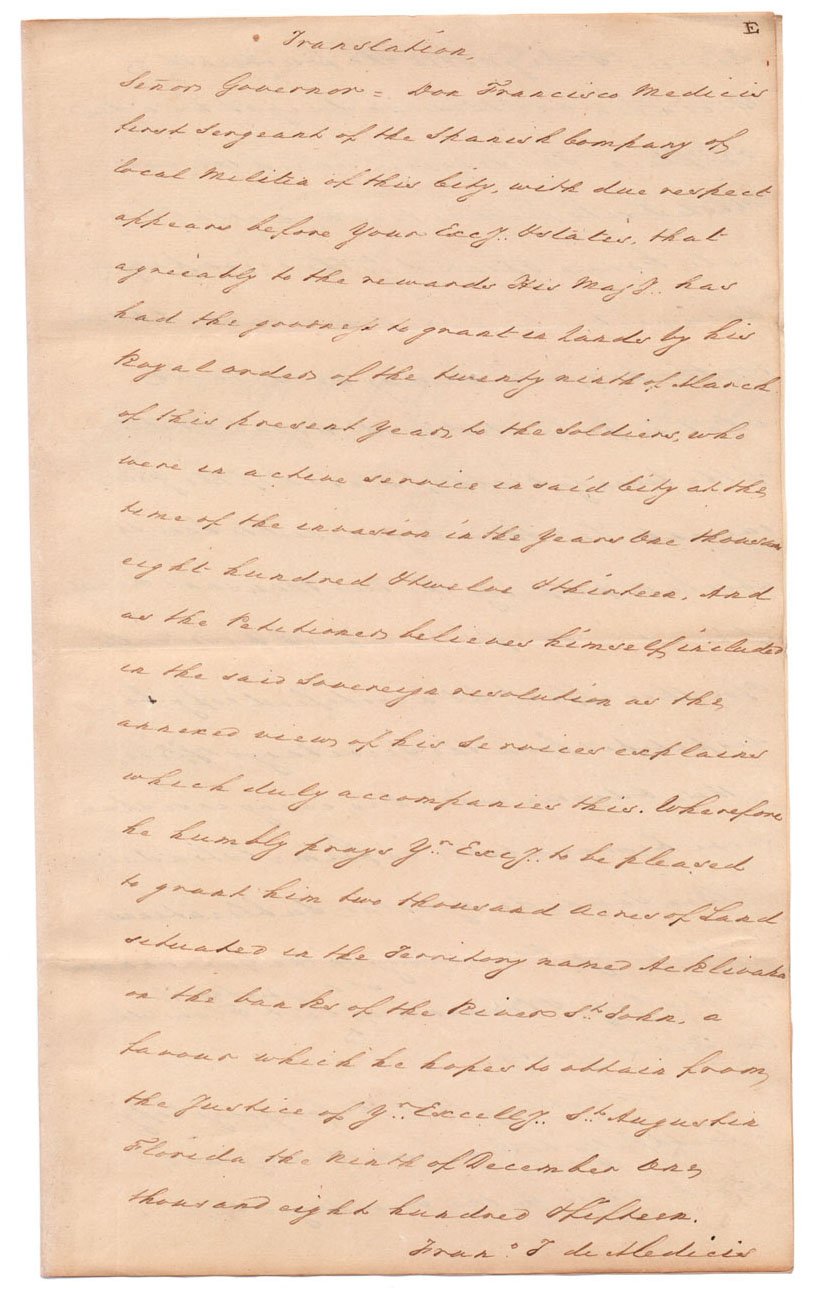 E
Translation,
Señor Governor = Don Francisco Medicis
first Sergeant of the Spanish Company of
local Militia of this City, with due respect
appears before Your Excy. & states, that
agreeably to the rewards His Majy. has
had the goodness to grant in lands by his
Royal order of the twenty ninth of March
of this present Year, to the Soldiers, who
were in active service in said City at the
time of the invasion in the Years One thousand
eight hundred & twelve & thirteen. And
as the Petitioner believes himself included
in the said Sovereign resolution as the
annexed view of his Services explains
which duly accompanies this. Wherefore
he humbly prays Yr. Excy. to be pleased
to grant him two thousand Acres of Land
situated in the Territory named Acklivaha
on the banks of the River St. John, a
favour which he hopes to obtain from
the Justice of Yr. Excelly. St. Augustin
Florida the Ninth of December One
thousand eight hundred & fifteen.
Frano. T de Medicis